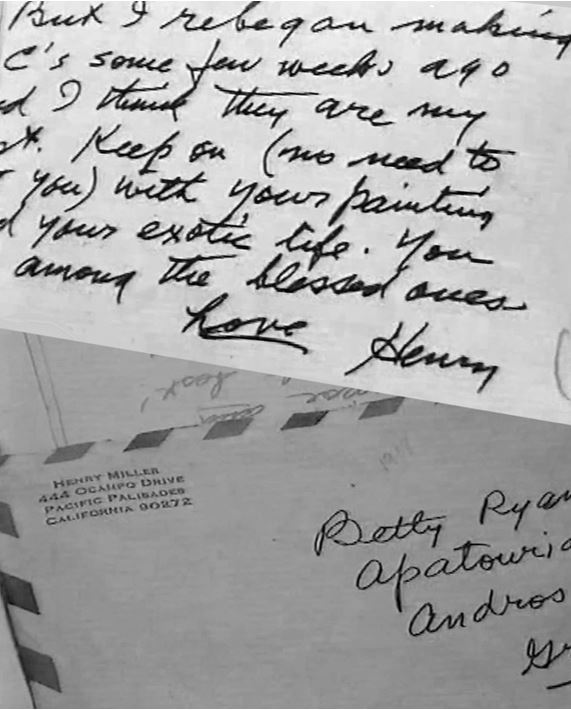 But I rebegan making
C's some few weeks ago
d I think they are my
st. Keep on (no need to
you) with your painting
d your exotic life. You
among the blessed ones
Love Henry
HENRY MILLER
444 OCAMPO DRIVE
PACIFIC PALISADES
CALIFORNIA 90272
Betty Ryan
Apatouria
Andros
Gr